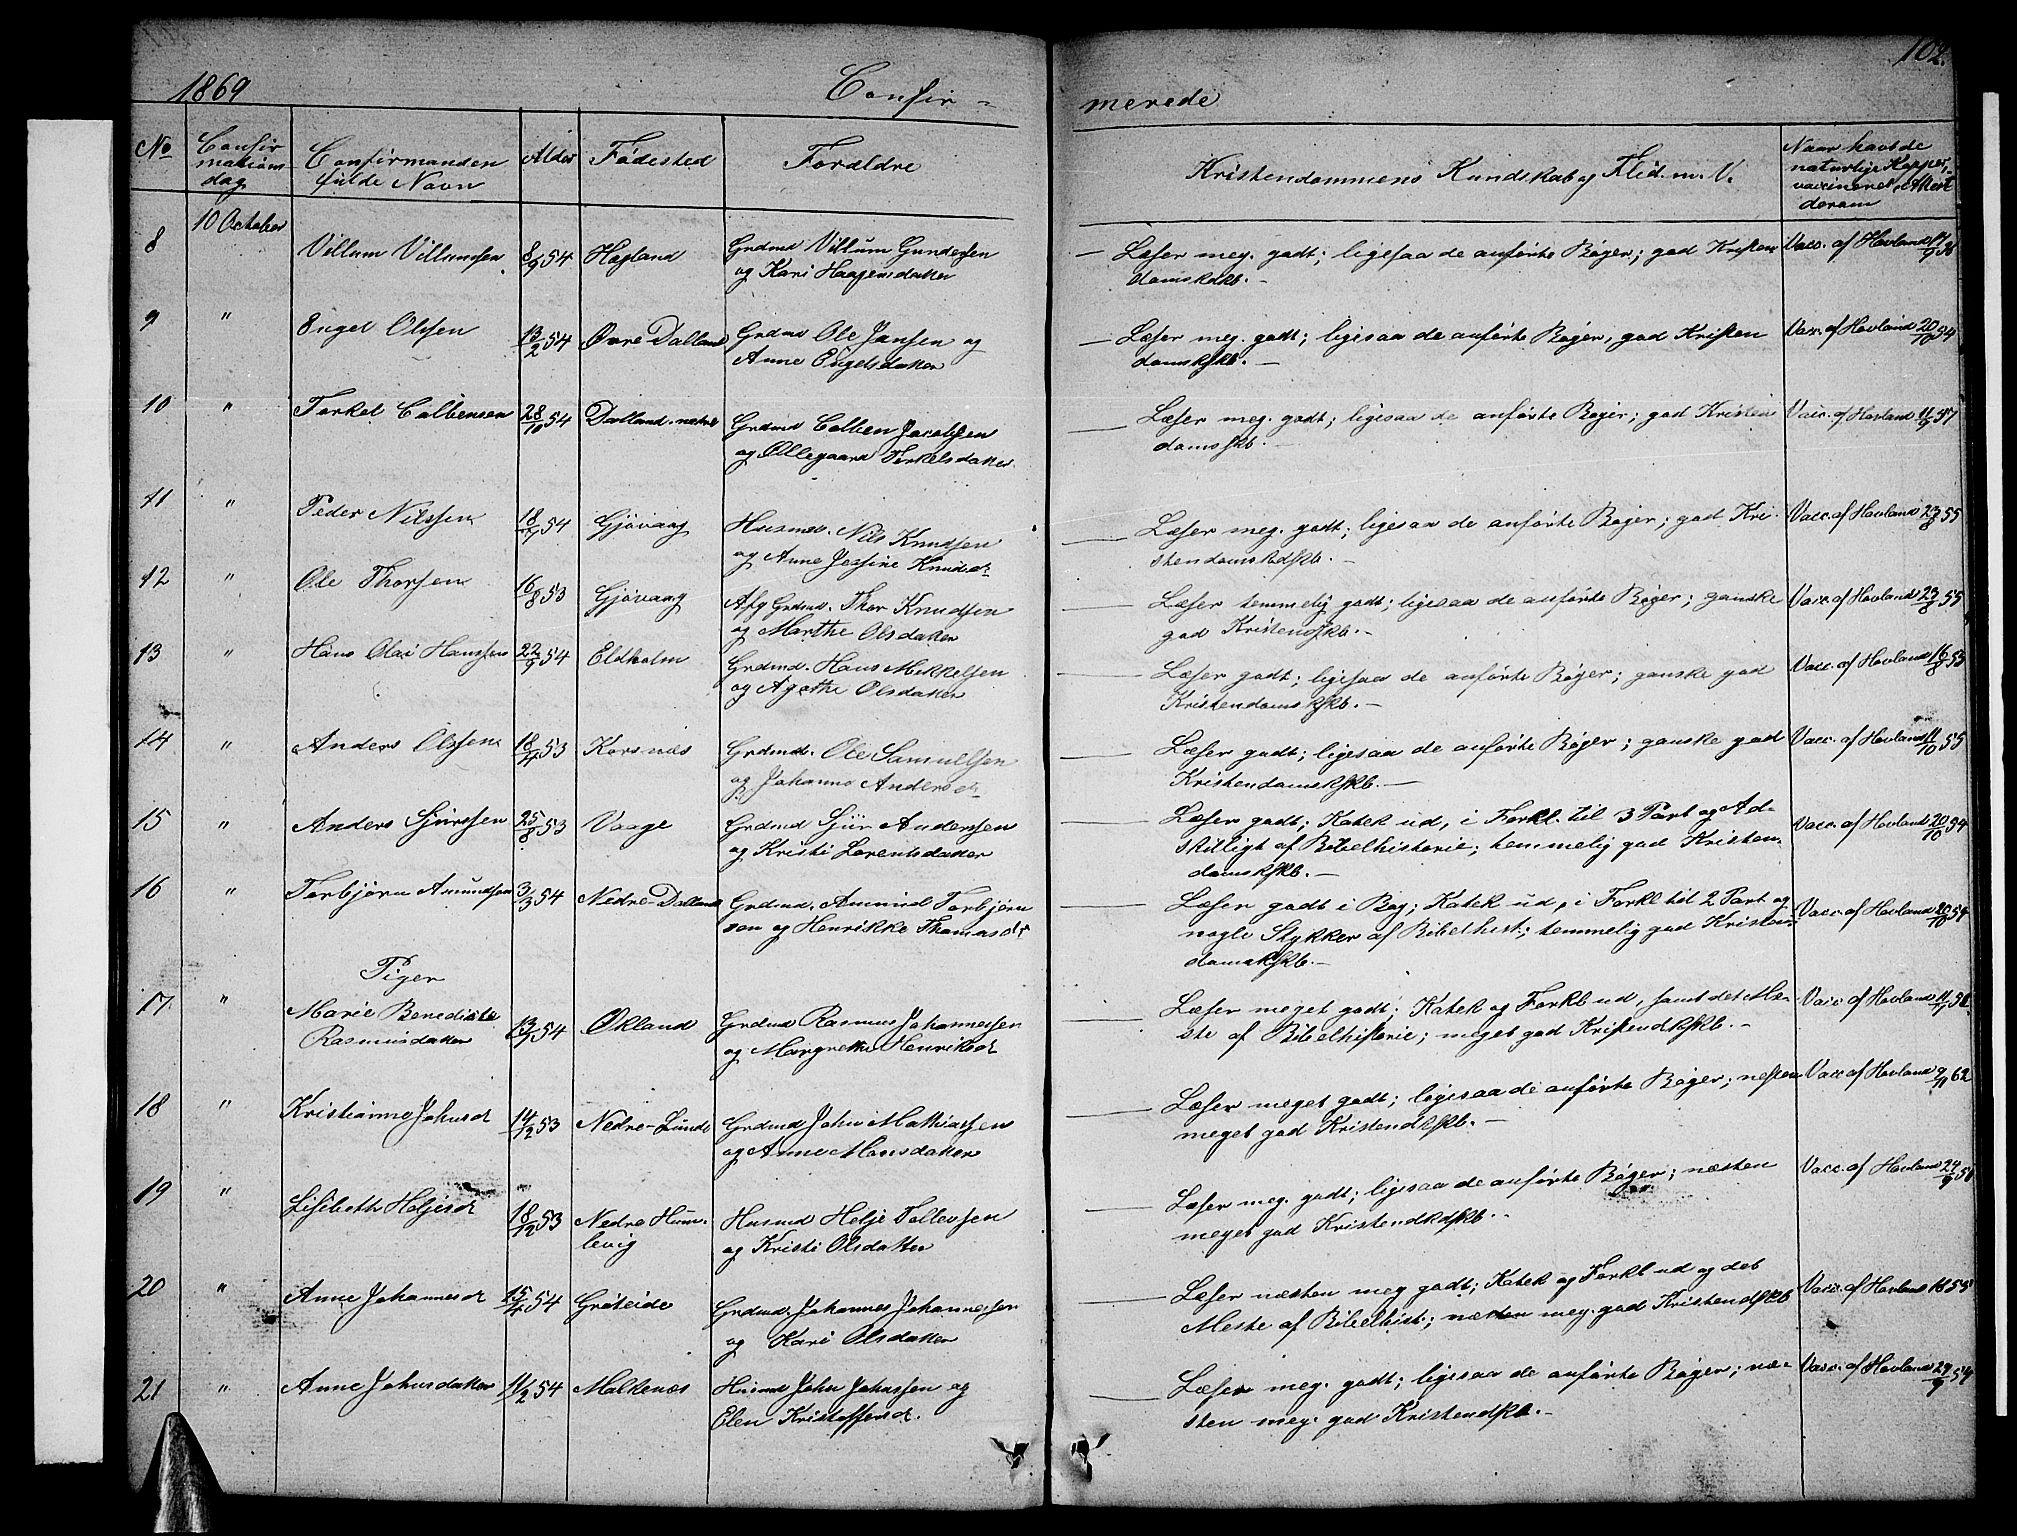 1869
Confir-
merede
102.
No
Confir
mations
dag
Confirmanden
fulde Navn
Alder
Fødested
Forældre
Kristendommens Kundskab og Flid. m. V.
Naar havt de
naturlige Kopper,
vaccineret, Attest
derom
8
10 October
Villum Villumsen
8/9 54
Hagland
Grdmd Villum Gundersen
og Kari Haagensdatter
Læser meg. godt; ligesaa de anførte Bøger; god Kristen
domskdskb. -
Vacc. af Hovland
9
"
Engel Olssen
13/2 54
Øvre Dalland
Grdmd Ole Jansen og
Anne Engelsdatter
Læser meg. godt; ligesaa de anførte Bøger, god Kristen
domskskb. -
Vacc. af Hovland 20/10 54
10
"
Torkel Colbensen
28/10 54
Dalland-nedre
Grdmd Colben Jacobsen
og Ollegaard Torkelsdatter
Læser meg. godt; ligesaa de anførte Bøger; god Kristen
domsskb.
Vacc. af Hovland 11/9 57
11
"
Peder Nilssen
18/7 54
Gjøvaag
Husmd. Nils Knudsen
og Anne Jessine Knudsdr
Læser meg. godt; ligesaa de anførte Bøger; god Kri-
stendomskdskb. -
Vacc. af Hovland 23/8 55
12
"
Ole Thorsen
16/8 53
Gjøvaag
Afg Grdmd. Thor Knudsen
og Marthe Olsdatter
Læser temmelig godt; ligesaa de anførte Bøger; ganske
god Kristendskb. -
Vacc. af Hovland 23/8 55
13
"
Hans Olai Hanssen
22/9 54
Eldholm
Grdmd. Hans Mikkelsen
og Agethe Olsdatter
Læser godt; ligesaa de anførte Bøger; ganske god
Kristendomskskb. -
Vacc. af Hovland 16/8 55
14
"
Anders Olssen
18/4 53
Korsnæs
Grdmd. Ole Samuelsen
og Johanne Andersdr
Læser godt; ligesaa de anførte Bøger; ganske god
Kristendomskskb. -
Vacc. af Hovland 11/10 55
15
"
Anders Sjurssen
25/8 53
Vaage
Grdmd Sjur Anderssen
og Kristi Lorentsdatter
Læser godt; Katek ud, i Forkl. til 3 Part og Ad-
skilligt af Bibelhistorie; temmelig god Kristen-
domskskb. -
Vacc. af Hovland 20/10 54
16
"
Torbjørn Amundsen
3/3 54
Nedre-Dalland
Grdmd. Ammund Torbjørn
sen og Henrikke Thomasdr
Læser godt i Bog; Katek ud, i Forkl til 2 Part og
nogle Stykker af Bibelhist; temmelig god Kristen-
domskskb. -
Vacc. af Hovland 20/10 54
Piger
17
"
Marie Benedikte
Rasmusdatter
13/7 54
Økland
Grdmd Rasmus Johannessen
og Margrethe Henriksdr
Læser meget godt; Katek og Forkl ud, samt det Me-
ste af Bibelhistorie; meget god Kristendkskb. -
Vacc af Hovland
18
"
Kristianne Johnsdr
14/2 53
Nedre-Lunde
Grdmd John Mathiassen
og Anne Monsdatter
Læser meget godt; ligesaa de anførte Bøger; nesten
meget god Kristendkskb. -
Vacc af Hovland 9/11 62
19
"
Lisibeth Heljesdr
18/12 53
Nedre Hum-
levig
Husmd Helje Tollevsen
og Kristi Olsdatter
Læser meg. godt; ligesaa de anførte Bøger; næsten
meget god Kristendkdskb. -
Vacc. af Hovland
20
"
Anne Johannesdr
15/4 54
Grøteide
Grdmd. Johannes Johannessen
og Kari Olsdatter
Læser næsten meg godt; Katek og Forkl ud og det
Meste af Bibelhist; næsten meg. god Kristendskb
Vacc. af Hovland
21
"
Anne Johnsdatter
11/2 54
Malkenæs
Husmd John Johnssen og
Elen Kristoffersdr.
Læser meg. godt; ligesaa de anførte Bøger; næ-
sten meg. god Kristendskb. -
Vacc. af Hovland 29/9 54